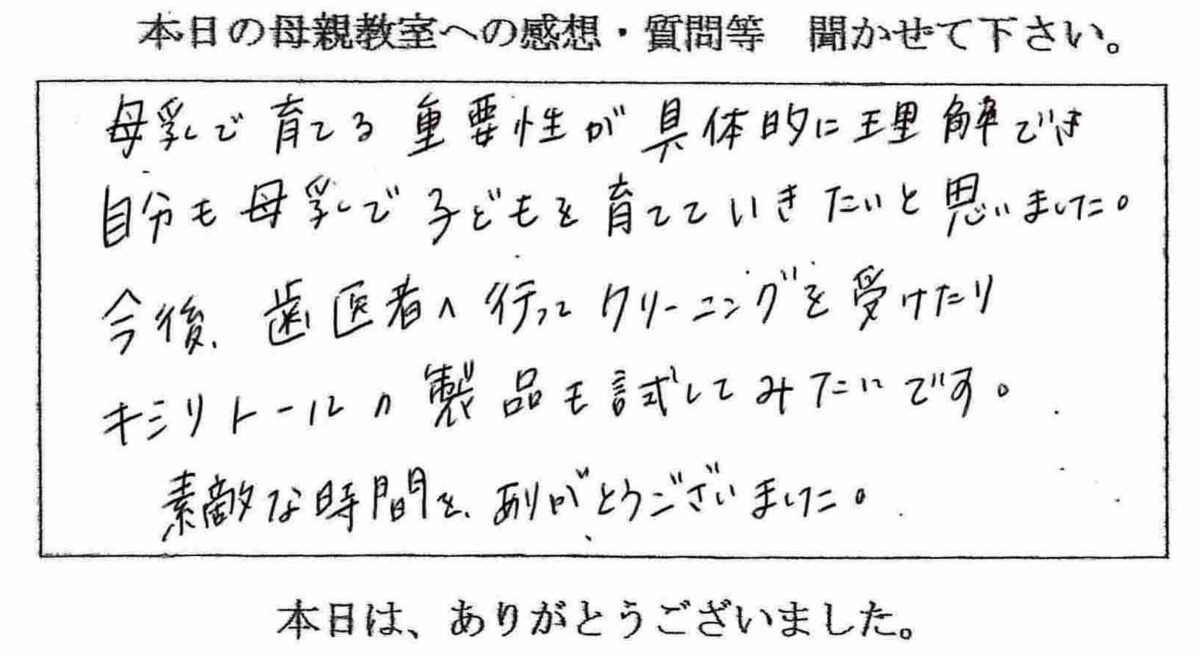 本日の母親教室への感想・質問等　聞かせて下さい。
母乳で育てる重要性が具体的に理解でき
自分も母乳で子どもを育てていきたいと思いました。
今後、歯医者へ行ってクリーニングを受けたり
キシリトールの製品も試してみたいです。
素敵な時間を、ありがとうございました。
本日は、ありがとうございました。